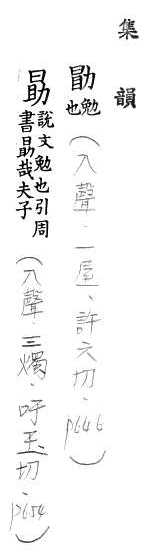 集韻
勖 勉也 (入聲．一屋、許六切．p646)
勗 說文勉也引周書勗哉夫子 (入聲．三燭．吁玉切．p654)